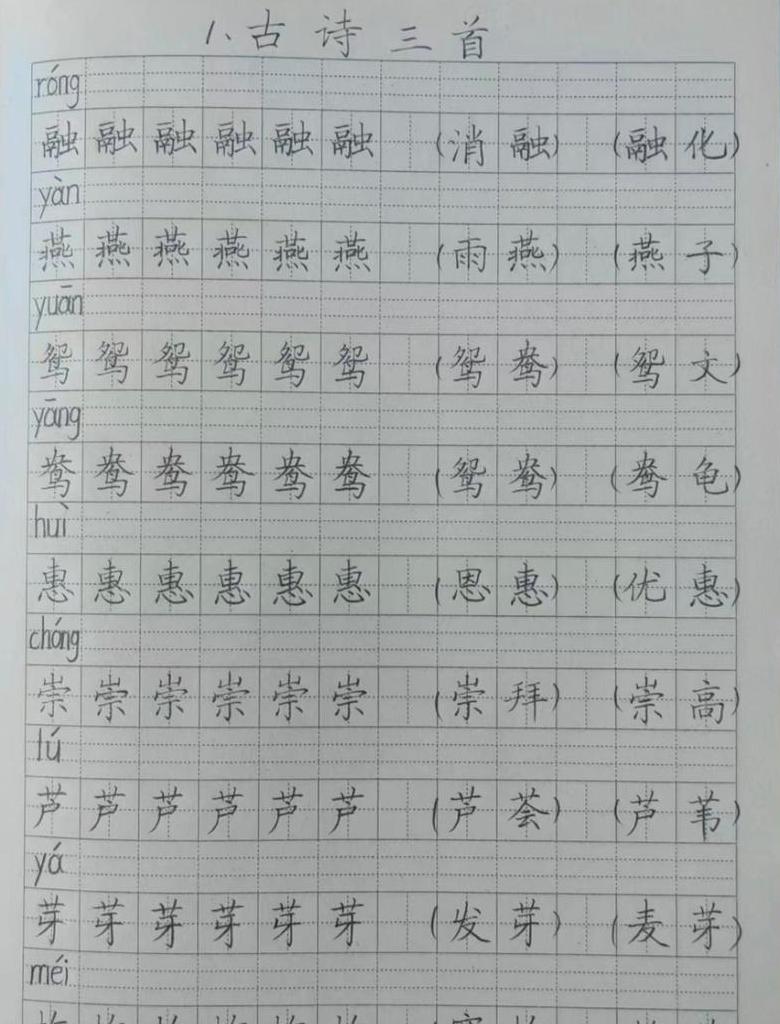 1、古诗三首
róng
融融融融融融(消融)(融化)
yàn
燕燕燕燕燕燕(雨燕)(燕子)
yuān
鸳鸳鸳鸳鸳鸳(鸳鸯)(鸳文)
yāng
鸯鸯鸯鸯鸯鸯(鸳鸯)(鸯龟)
huì
惠惠惠惠惠惠(恩惠)(优惠)
chóng
崇崇崇崇崇崇(崇拜)(崇高)
lú
芦芦芦芦芦芦(芦荟)(芦苇)
yá
芽芽芽芽芽芽(发芽)(麦芽)
méi